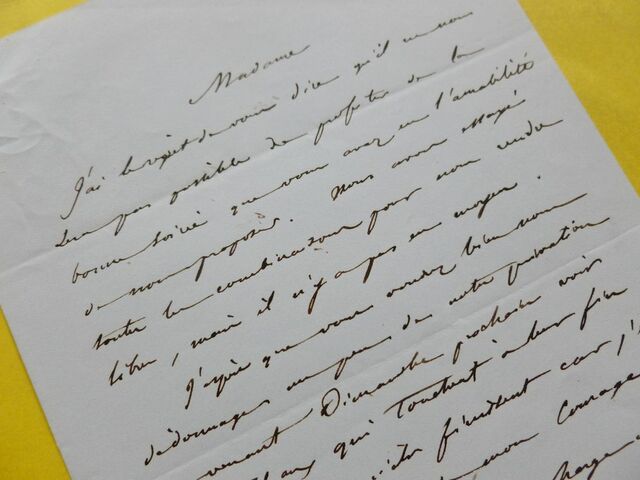 Madame
J'ai le regret de vous dire qu'il ne nous
sera pas possible de profiter de la
bonne soirée que vous avez eu l'amabilité
de nous proposer. Nous avons essayé
toutes les combinaisons pour nous rendre
libres, mais il n'y a pas eu moyen.
J'espère que vous voudrez bien nous
dédommager un peu de notre privation
venant Dimanche prochain voir
qui touchent à leur fin
finissent car j'
mon courage